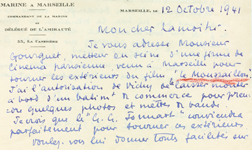 MARINE A MARSEILLE
COMMANDANT DE LA MARINE
DÉLÉGUÉ DE L'AMIRAUTÉ
MARSEILLE, LE 12 Octobre 1941
Mon cher
Je vous adresse Monsieur
metteur en scène d'une firme de
Cinéma parisienne venu à Marseille pour
tourner les extérieurs du film
J'ai l'autorisation de Vichy de laisser monter
à bord d'un batim^t de commerce pour prendre
quelques photos et mettre
Je crois que le "G.G. Jonnart" conviendra
parfaitement pour tourner ces extérieurs
Voulez-vous lui donner toute facilité